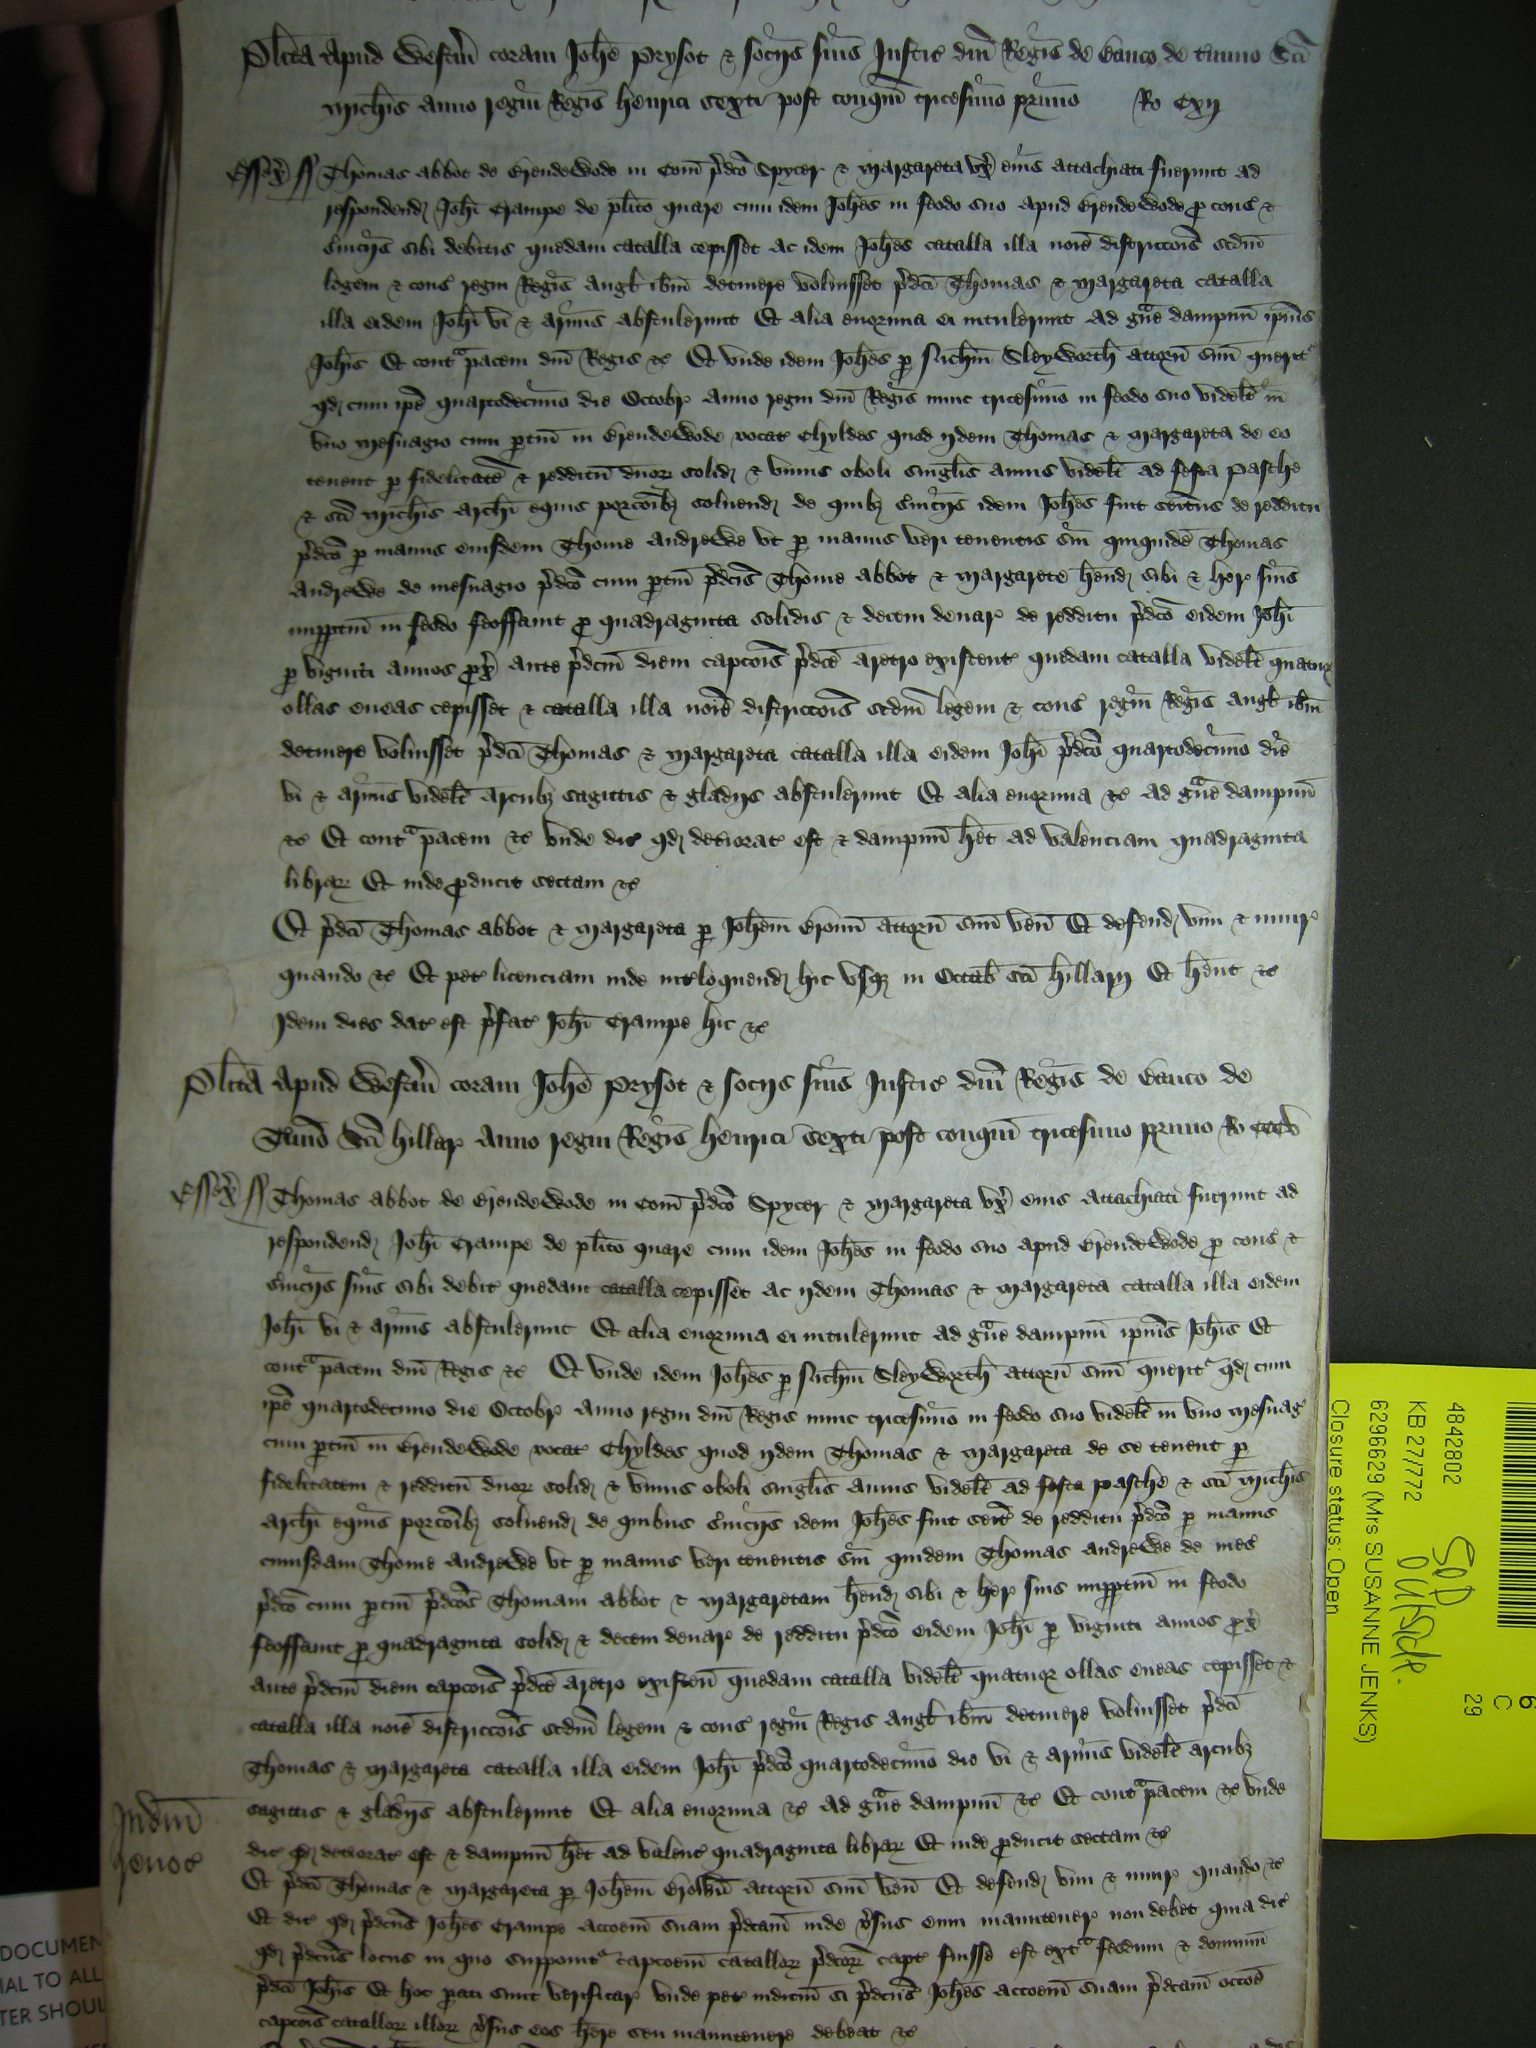 Pl'ita apud Westm' coram Joh'e Prysot & socijs suis Justic' d'ni Regis de Banco de t'mino S'ci
Mich'is anno regni Regis Henrici sexti post conqm' tricesimo primo Ro Cxij
Essex' ss Thomas Abbot de Brendewode in Com' p'dco Spycer & Margareta vx' eius attachiati fuerunt ad
respondend' Joh'i Crampe de pl'ito quare cum idem Joh'es in feodo suo apud Brendewode p cons' &
s'uicijs sibi debitis quedam catalla cepisset ac idem Joh'es catalla illa no'ie districcois scdm
legem & cons' regni Regis Angl' ib'm detinere voluisset p'dci Thomas & Margareta catalla
illa eidem Joh'i vi & armis abstulerunt Et alia enormia ei intulerunt Ad g'ue dampnu' ip'ius
Joh'is Et cont'a pacem d'ni Regis &c Et vnde idem Joh'es p Sleyworth attorn' suu' querit'
qd' cum ip'e quartodecimo die Octobr' anno regni d'ni Regis nunc tricesimo in feodo suo videl't in
vno mesuagio cum p'tin' in Brendewode vocat' Chyldes quod ijdem Thomas & Margareta de eo
tenent p fidelitate' & redditu' duor' solid' & vnius oboli singlis annis videl't ad festa Pasche
& s'ci Mich'is Arch'i equis porcoib' soluend' de quib' s'uicijs idem Joh'es fuit seitus de redditu
p'dco p manus eiusdem Thome Andrewe vt p manus veri tenentis sui quiquide' Thomas
Andrewe de mesuagio p'dco cum p'tin' p'dcis Thome Abbot & Margarete h'end' sibi & her' suis
imppetm' in feodo feoffauit p quadraginta solidis & decem denar' de redditu p'dco eidem Joh'i
p viginti annos p'x' ante p'dcm diem capcois p'dce aretro existent' quedam catalla videl't quatuor
ollas eneas cepisset & catalla illa no'ie districcois scdm legem & cons' regni Regis Angl' ib'm
detinere voluisset p'dci Thomas & Margareta catalla illa eidem Joh'i p'dco quartodecimo die
vi & armis videl't arcub' sagittis & gladijs abstulerunt Et alia enormia &c Ad g'ue dampnu'
&c Et cont'a pacem &c vnde dic' qd' deteriorat' est & dampnu' h'et ad valenciam quadraginta
librar' Et inde p'ducit sectam &c
Et p'dci Thomas Abbot & Margareta p Joh'em Broun attorn' suu' ven' Et defend' vim & iniur'
quando &c Et pet' licenciam inde int'loquend' hic vsq' in Octab' s'ci Hillarij Et h'ent &c
Idem dies dat' est p'fat' Joh'i Crampe hic &c
Pl'ita apud Westm' coram Joh'e Prysot & socijs suis Justic' d'ni Regis de Banco de
T'mino S'ci Hillar' Anno regni Regis Henrici Sexti post conqm' tricesimo primo Ro
Essex' ss Thomas Abbot de Brendewode in Com' p'dco Spycer & Margareta vx' eius attachiati fuerunt ad
respondend' Joh'i Crampe de pl'ito quare cum idem Joh'es in feodo suo apud Brendewode p cons' &
s'uicijs suis sibi debit' quedam catalla cepisset ac ijdem Thomas & Margareta catalla illa eidem
Joh'i vi & armis abstulerunt Et alia enormia ei intulerunt ad g'ue dampnu' ip'ius Joh'is Et
cont'a pacem d'ni Regis &c Et vnde idem Joh'es p Sleyworth attorn' suu' querit' qd' cum
ip'e quartodecimo die Octobr' anno regni d'ni Regis nunc tricesimo in feodo suo videl't in vno mesuag'
cum p'tin' in Brendewode vocat' Chyldes quod ijdem Thomas & Margareta de se tenent p
fidelitatem & redditu' duor' solid' & vnius oboli singlis annis videl't ad festa Pasche & s'ci Mich'is
Arch'i equis porcoib' soluend' de quibus s'uicijs idem Joh'es fuit seit' de redditu p'dco p manus
cuiusdam Thome Andrewe vt p manus veri tenentis sui quidem Thomas Andrewe de mes'
p'dco cum p'tin' p'dcos Thomam Abbot & Margaretam h'end' sibi & her' suis imppetm' in feodo
feoffauit p quadraginta solid' & decem denar' de redditu p'dco eidem Joh'i p viginti annos p'x'
ante p'dcm diem capcois p'dce aretro existen' quedam catalla videl't quatuor ollas eneas cepisset &
catalla illa no'ie districcois scdm legem & cons' regni Regis Angl' ib'm detinere voluisset p'dci
Thomas & Margareta catalla illa eidem Joh'i p'dco quartodecimo die vi & armis videl't arcub'
sagittis & gladijs abstulerunt Et alia enormia &c Ad g'ue dampnu' &c Et cont'a pacem &c vnde
dic' qd' deteriorat' est & dampnu' h'et ad valenc' quadraginta librar' Et inde p'ducit sectam &c
Et p'dci Thomas & Margareta p Joh'em Broun attorn' suu' ven' Et defend' vim & iniur' quando &c
Et dic' qd' p'dcus Joh'es Crampe accoem suam p'dcam inde v'sus eum manutener' non debet quia dic'
qd' p'dcus locus in quo supponit' capcoem catallor' p'dcor' capt' fuisse est ext'a feodum & dominiu'
p'dci Joh'is Et hoc parati sunt verificar' vnde pet' iudiciu' si p'dcus Joh'es accoem suam p'dcam occoe
capcois catallor' illor' v'sus eos h'ere seu manutenere debeat &c
4842802
KB 27/772
6296629 (Mrs SUSANNE JENKS)
Closure status: Open
6
C
29
DOCUMEN
IAL TO ALL
TER SHOUL